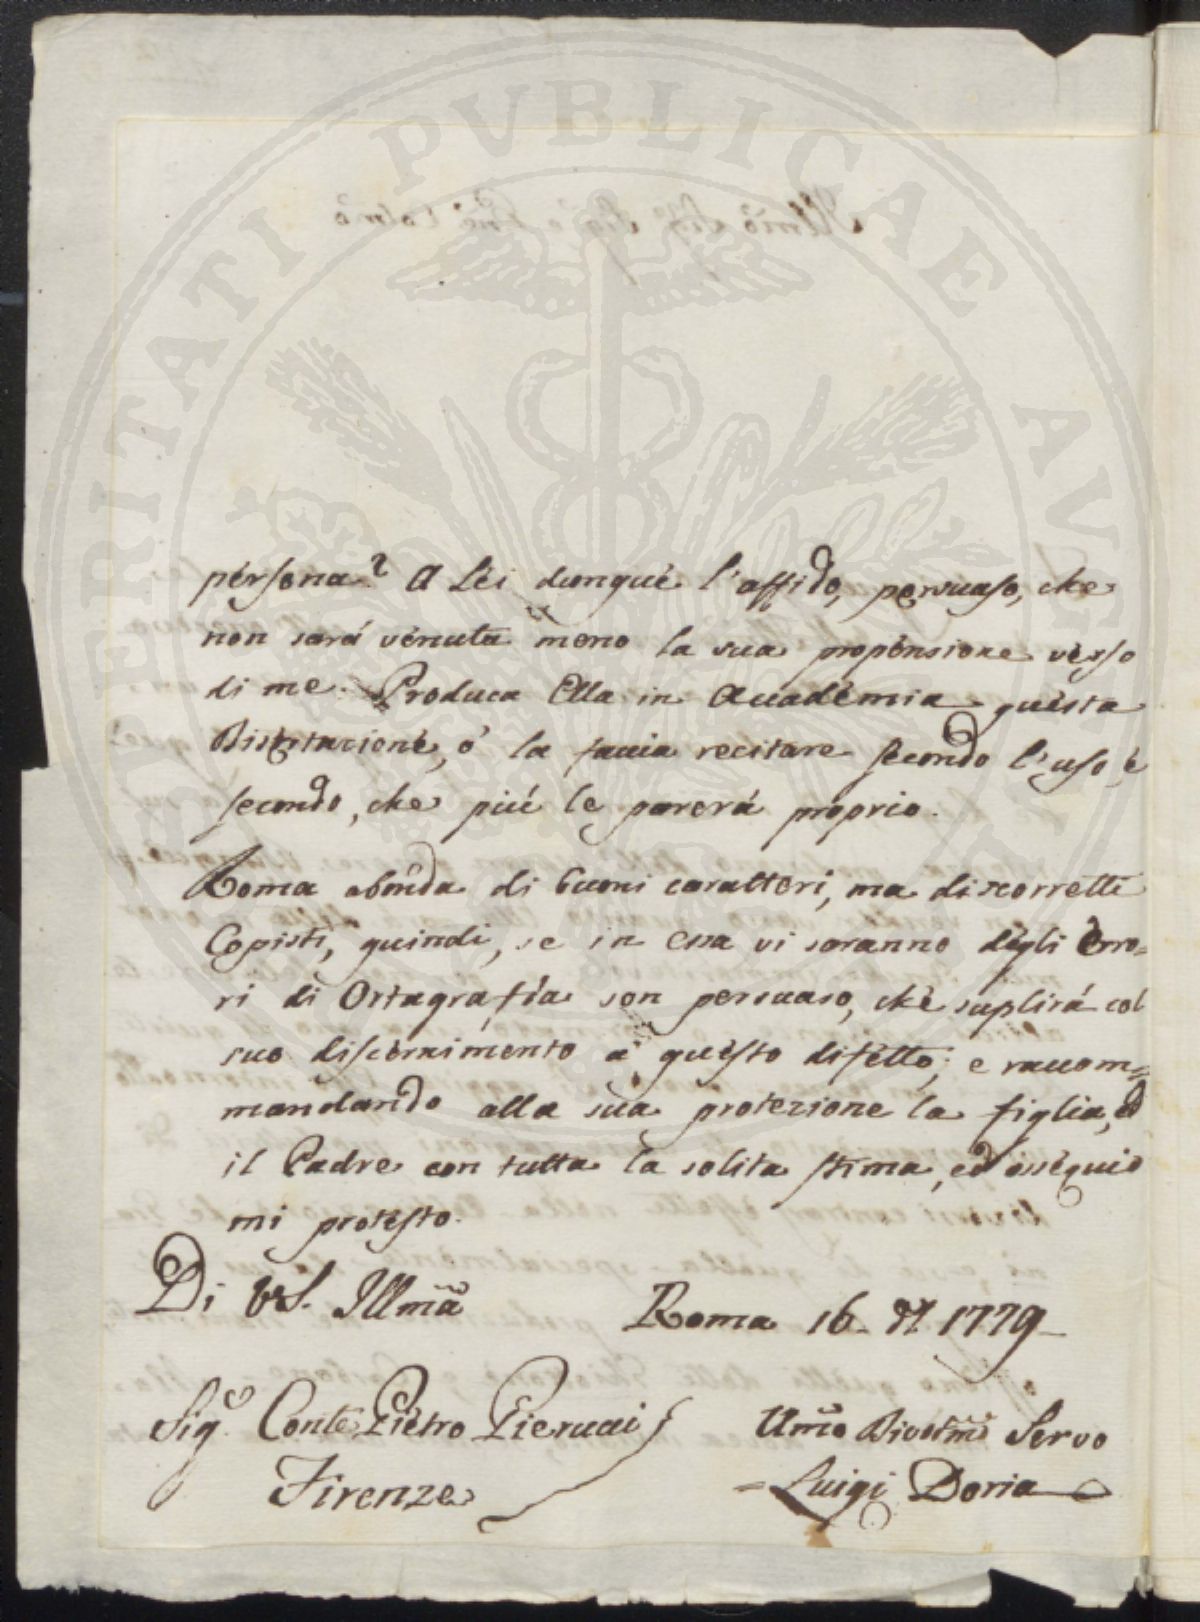 persona? A Lei dunque l'affido, persuaso, che
non sará venuta meno la sua propensione verso
di me. Produca Ella in Accademia questa
Dissertazione, ó la faccia recitare secondo l'uso, é
secondo, che piú le parerá proprio.
Roma abonda di buoni caratteri, ma discorretti
Copisti, quindi, se in essa vi saranno degli Erro=
ri di Ortagrafia son persuaso, che suplirá col
suo discernimento a questo difetto; e raccom=
mandando alla sua protezione la figlia, ed
il Padre con tutta la solita stima, ed ossequio
mi protesto.
Di VS. Illma
Roma 16. 1779
Sigr. Conte Pietro Pierucci
Firenze
Umo Divotmo Servo
Luigi Doria
PROSPERITATI PUBLICAE AUG